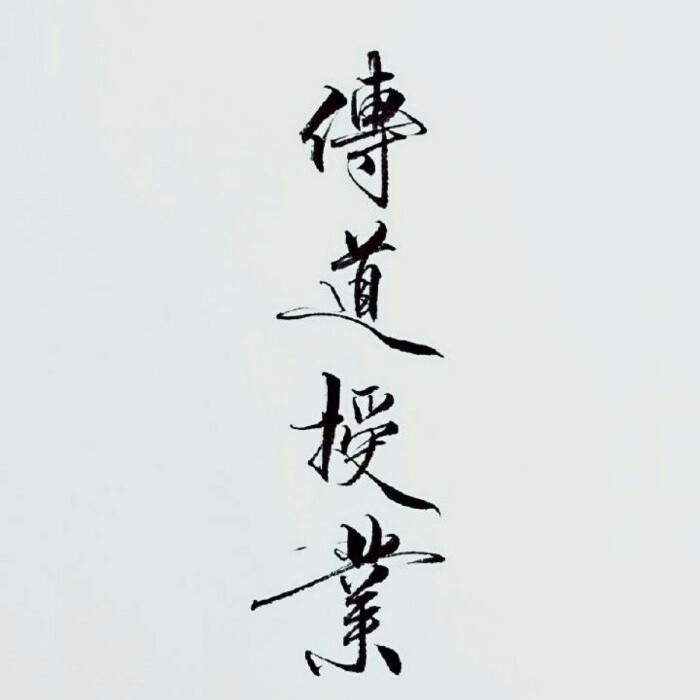 傳道授業